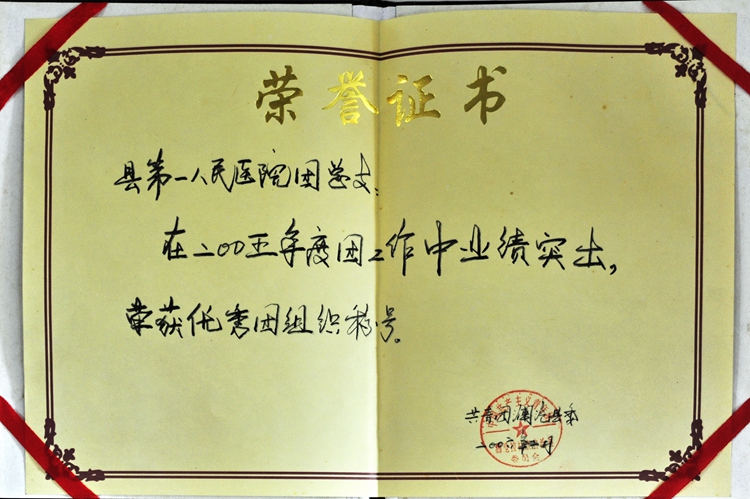 荣誉证书
县第一人民医院团总支:
在二00五年度团工作中业绩突出,
荣获优秀团组织称号。
共青团澜沧县委
二00六年二月